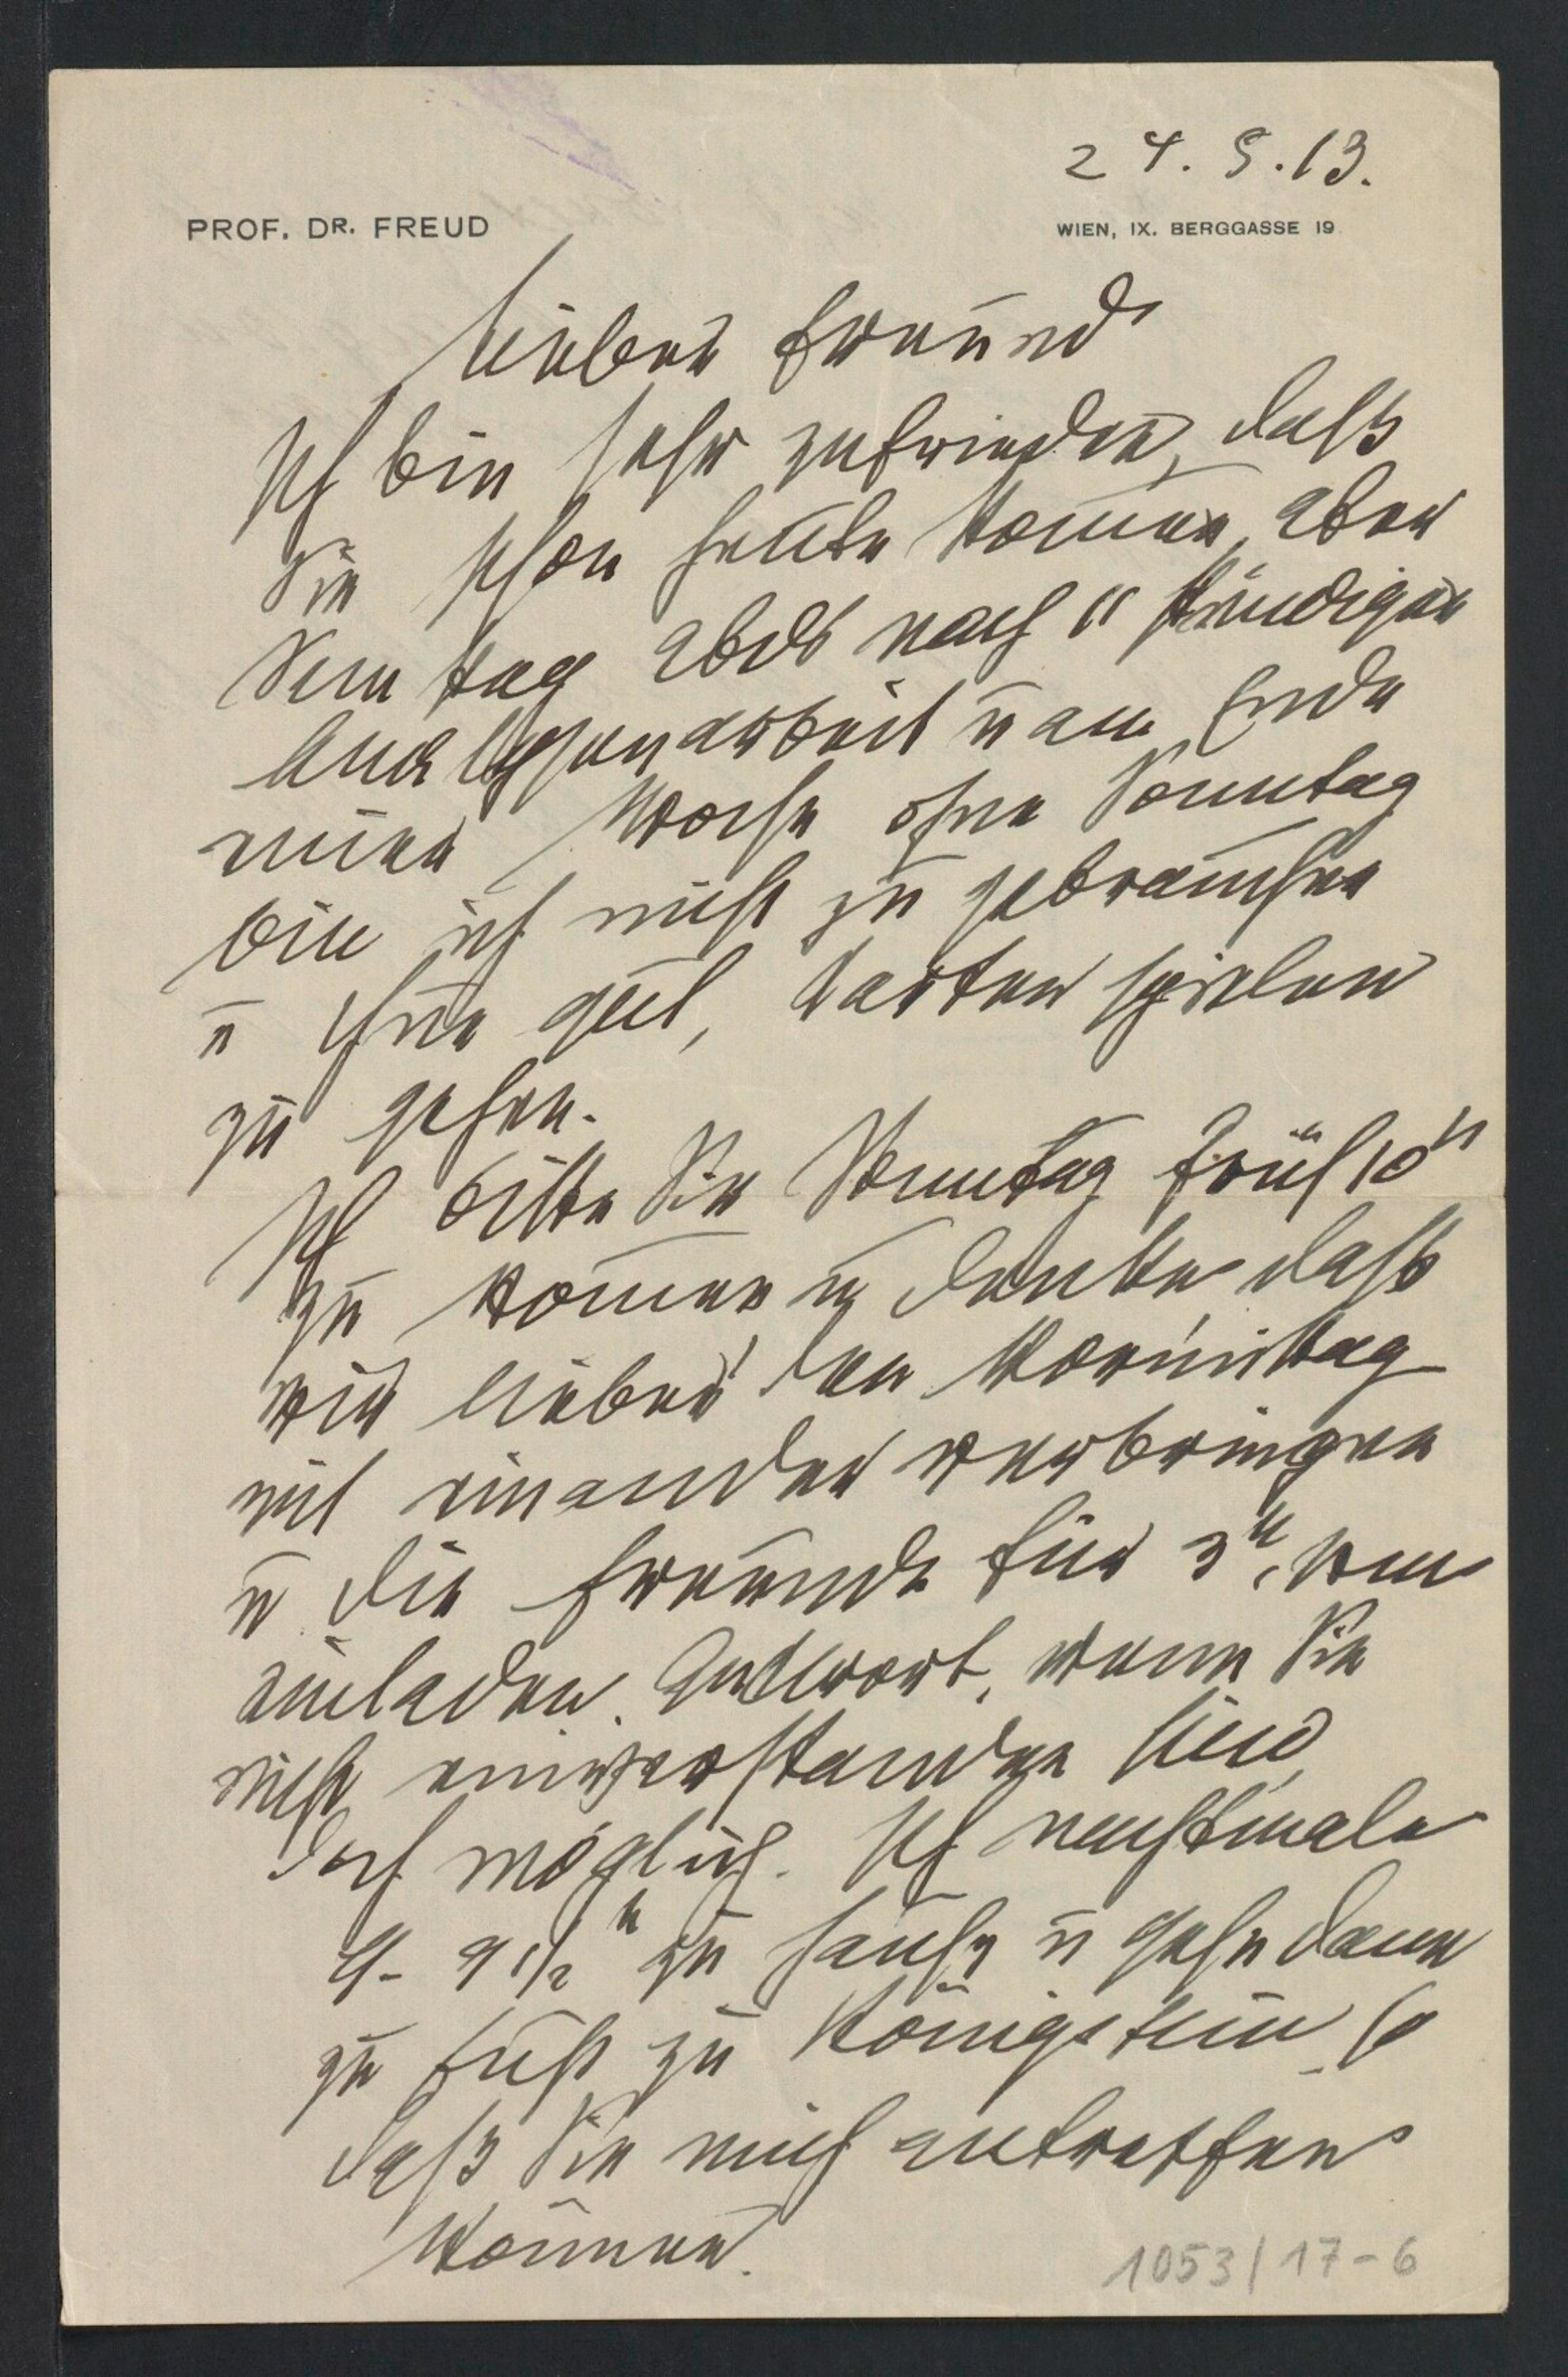 24. 5. 13.
PROF. DR. FREUD
WIEN, IX. BERGGASSE 19
Lieber Freund
Ich bin sehr zufrieden, daß
Sie schon heute kom̄en, aber
Samstag abds nach 11 stündiger
Analysenarbeit u am Ende
einer Woche ohne Sonntag
bin ich nicht zu gebrauchen
u thue gut, Karten spielen
zu gehen.
Ich bitte Sie Sonntag früh 10 h
zu kom̄en u denke daß
wir lieber den Vormittag
mit einander verbringen
u die Freunde für 3 h,
einladen. Antwort, wenn Sie
nicht einverstanden sind,
doch möglich. Ich
9 - 9 1/2 h zu Hause u gehe dann
zu Fuß zu Königstein so
daß Sie mich antreffen
können.
1053/17-6